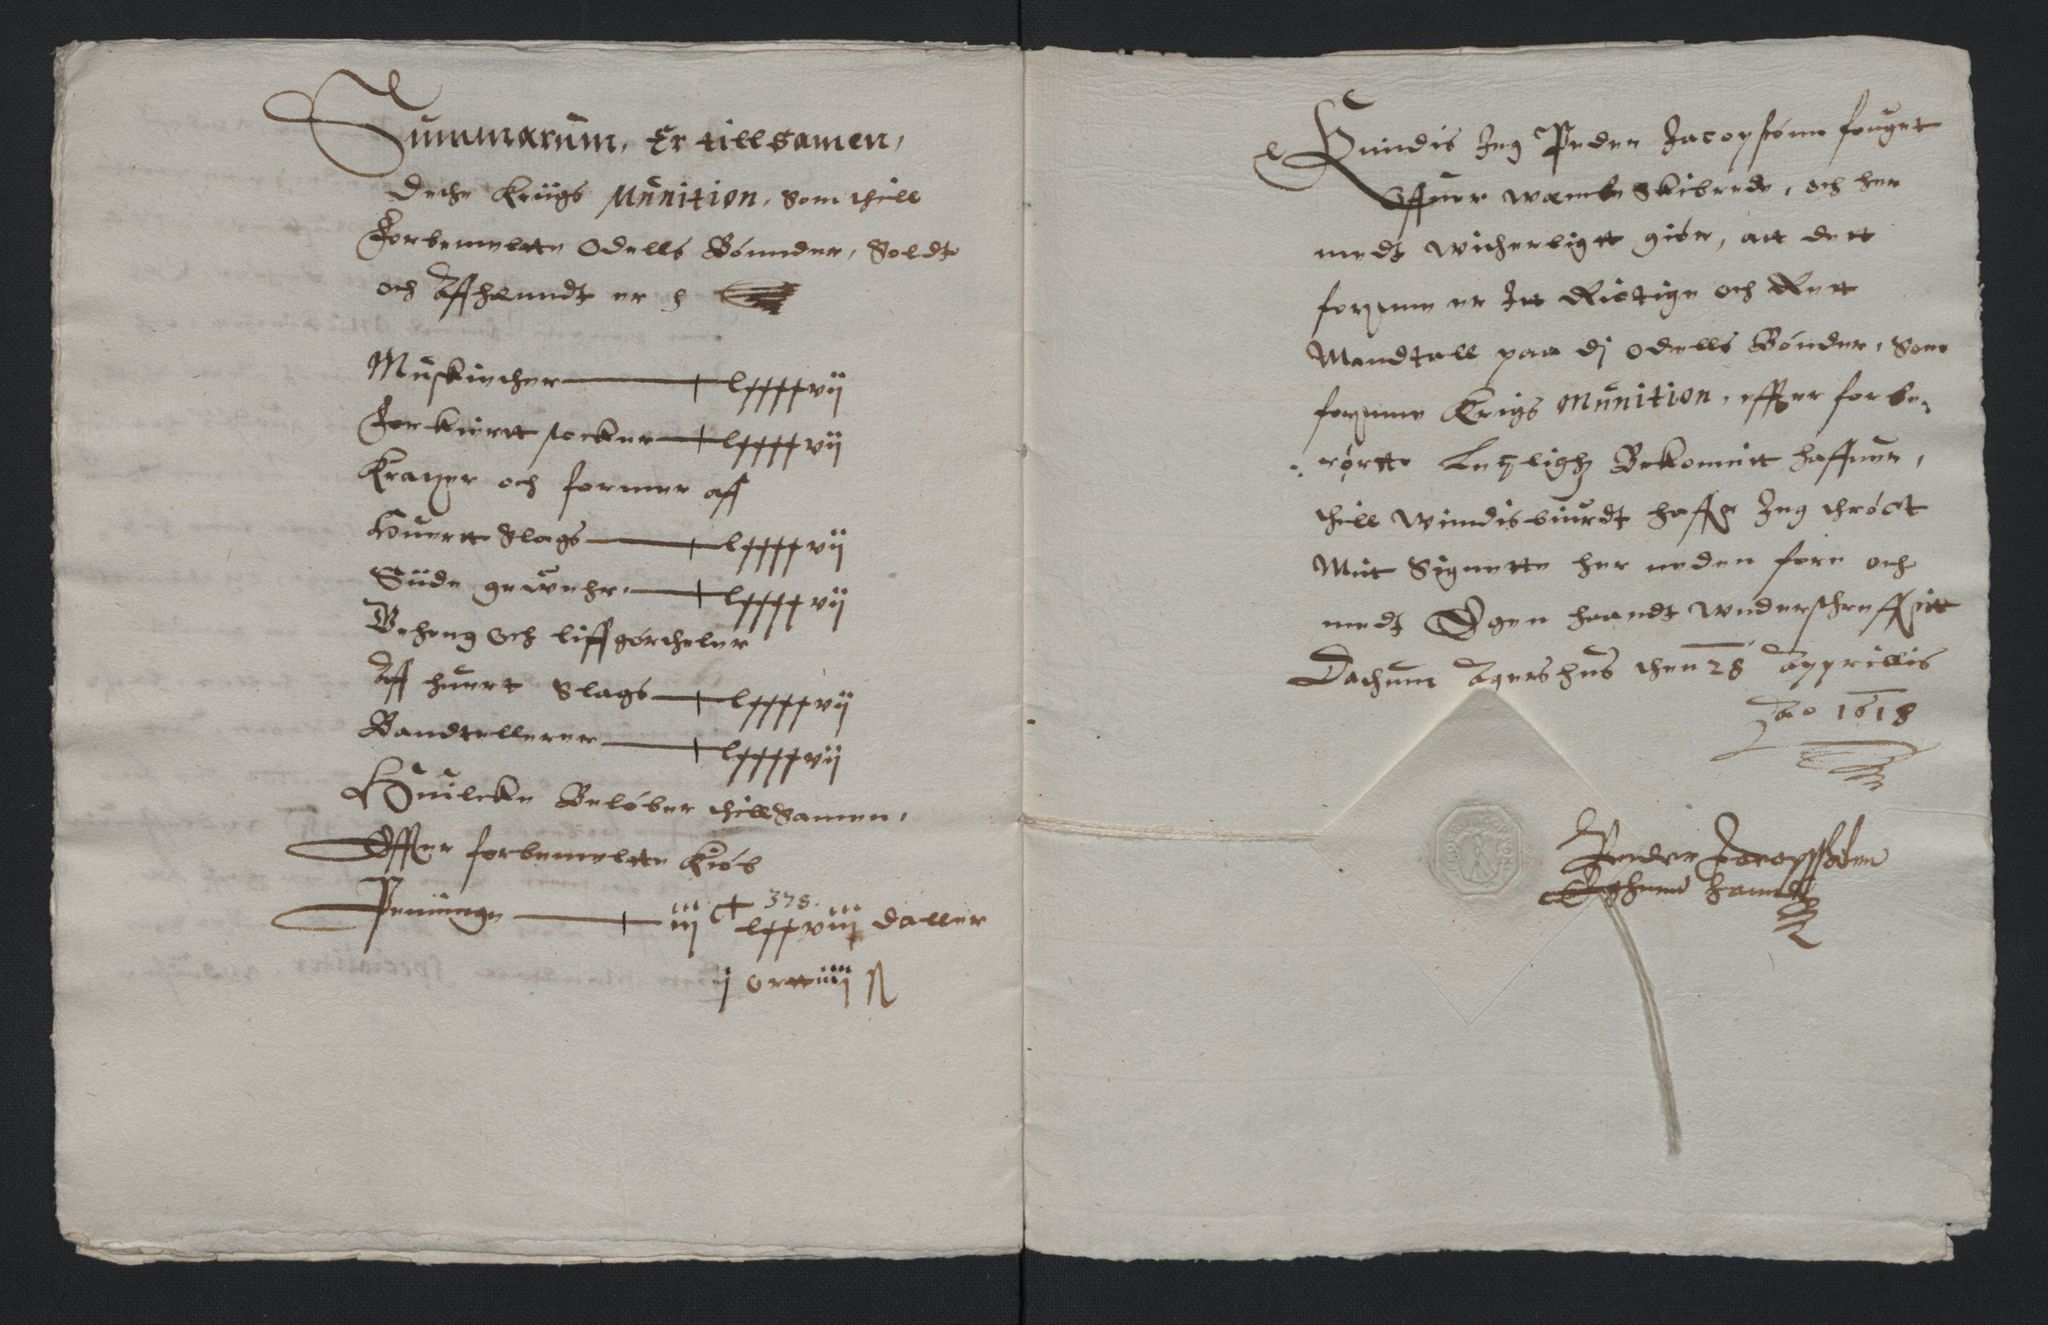 Summarum, Er tillsamen,
Dethe Kriigs Munition, Som thill
Forbemeltte Odells Bönnder, Soldt
och Affhenndt er
Muskiether lxxxxvii
Forkiertt stocker lxxxxvii
Kratzer och former aff
Huertt Slags lxxxxvii
Siide gewehr lxxxxvii
Beheng och liffgörtheler
Aff huert Slags lxxxxvii
Bandtellerer lxxxxvii
Huilcke Belöber thillSamen,
Effter forbemeltte Kiöb
378.
Penninge iii C lxxviii daller
j ortt iiii ß
Kiendis Jeg Peder Jacopsönn fouget
Offuer Wembe Skibrede, och her
medt witherligtt giör, att dett
forschne er Itt Richtige och Rett
Mandtall paa di Odells Bönder, Som
forschne Krigs Munition, effter forbe,
rörtte Leyligh Bekomitt haffuer,
thill Windisbiurdt haffr Jeg thröct
Mit Signette her neden fore och
medt Egen haandt Wnderschreffuitt
Dathum Agershus then 28 Apprillis
Ao 1618
Peder Jacopssönn
Eghenn hannd